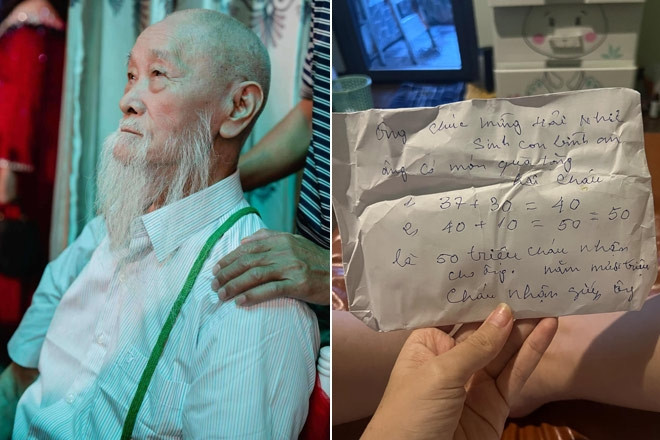 Ông chúc mừng Hải Nhi
sinh con bình an
ông có món quà tặng
hai cháu
1, 37 + 30 = 40
2, 40 + 10 = 50 = 50
là 50 triệu cháu nhận
cho ông. năm mươi triệu
cháu nhận giúp ông